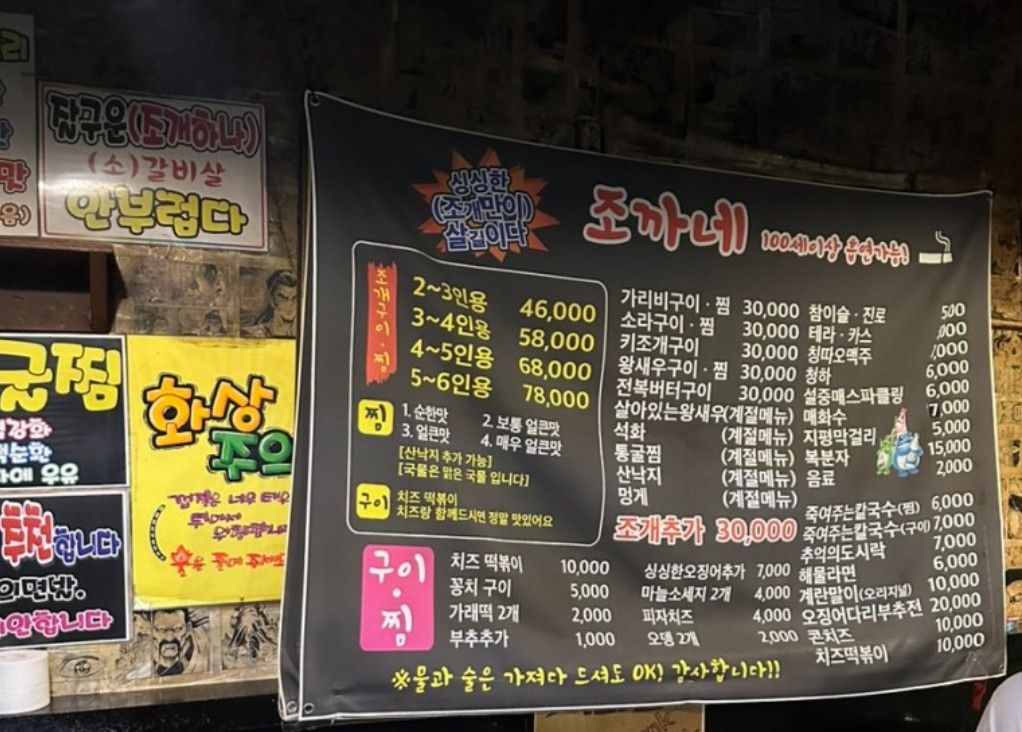 잘구운(조개하나)
(소)갈비살
안부럽다
맛
화상
주의
추천합니다
싱싱한
(조개만이)
살길이다
조까네 100세이상 흡연가능!
조개구이·찜
2~3인용 46,000
3~4인용 58,000
4~5인용 68,000
5~6인용 78,000
찜
1. 순한맛 2. 보통 얼큰맛
3. 얼큰맛 4. 매우 얼큰맛
[산낙지 추가 가능]
[국물은 맑은 국물 입니다]
구이
치즈 떡볶이
치즈랑 함께드시면 정말 맛있어요
가리비구이·찜 30,000
소라구이·찜 30,000
키조개구이 30,000
왕새우구이·찜 30,000
전복버터구이 30,000
살아있는왕새우(계절메뉴)
석화 (계절메뉴)
통굴찜 (계절메뉴)
산낙지 (계절메뉴)
멍게 (계절메뉴)
조개추가 30,000
참이슬·진로
테라·카스
칭따오맥주
청하 6,000
설중매스파클링 6,000
매화수 7,000
지평막걸리 5,000
복분자 15,000
음료 2,000
죽여주는칼국수(찜) 6,000
죽여주는칼국수(구이) 7,000
추억의도시락 7,000
해물라면 6,000
계란말이(오리지널) 10,000
오징어다리부추전 20,000
콘치즈 10,000
치즈떡볶이 10,000
구이·찜
치즈 떡볶이 10,000
꽁치 구이 5,000
가래떡 2개 2,000
부추추가 1,000
싱싱한오징어추가 7,000
마늘소세지 2개 4,000
피자치즈 4,000
오뎅 2개 2,000
※물과 술은 가져다 드셔도 OK! 감사합니다!!